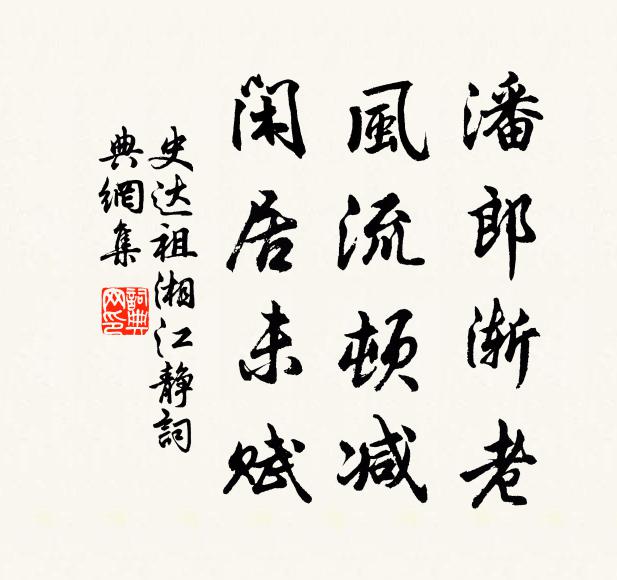 潘郎渐老
風流顿减
闲居未赋
史达祖湘江静詞
典網集
詞典网印